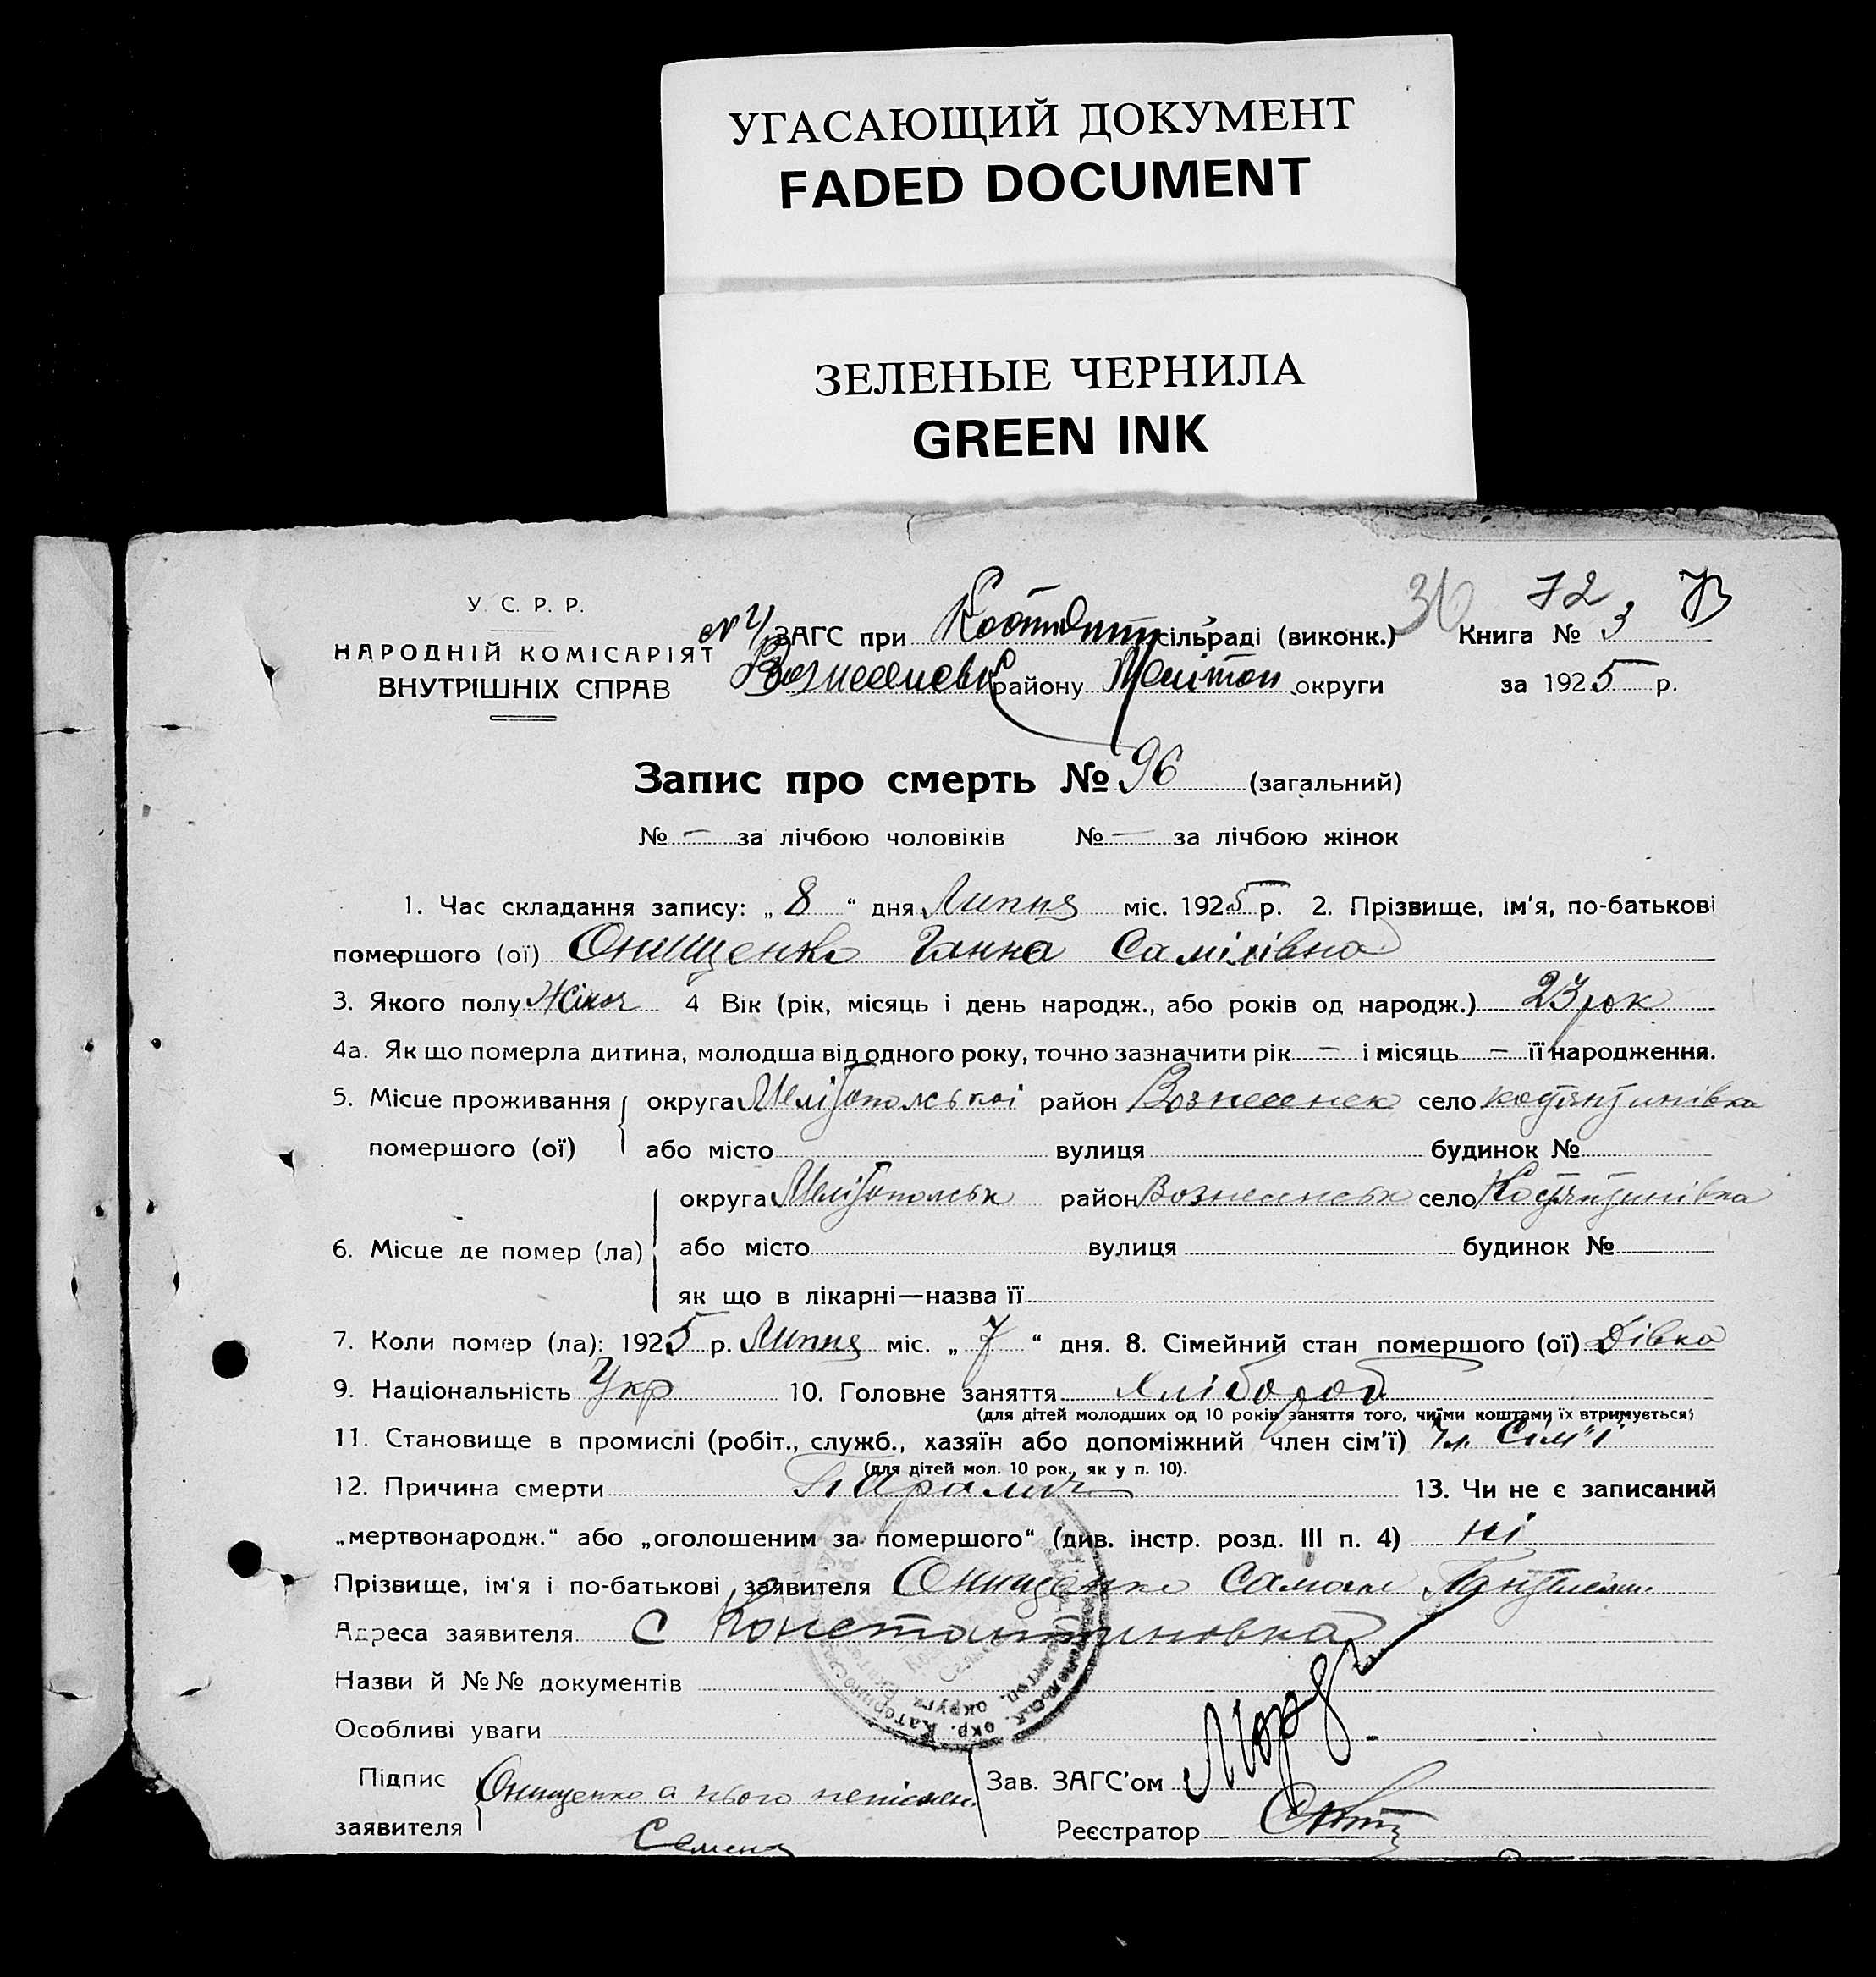 УГАСАЮЩИЙ ДОКУМЕНТ
FADED DOCUMENT
ЗЕЛЕНЫЕ ЧЕРНИЛА
GREEN INK
36 72 73
У. С. Р. Р.
НАРОДНІЙ КОМІСАРІЯТ
ВНУТРІШНІХ СПРАВ
ЗАГС при сільраді (виконк.) Книга № 3
району округи за 1925 р.
Запис про смерть № 96 (загальний)
№ — за лічбою чоловіків № — за лічбою жінок
1. Час складання запису: „ 8 “ дня Липня міс. 1925 р. 2. Прізвище, ім'я, по-батькові
помершого (ої) Онищенко Ганна Самілівна
3. Якого полу Жіноч 4 Вік (рік, місяць і день народж., або років од народж.) 23 рок
4а. Як що померла дитина, молодша від одного року, точно зазначити рік — і місяць — її народження.
5. Місце проживання округа Мелітопольської район Вознесенск село
помершого (ої) або місто вулиця будинок №
округа Мелітопольськ район Вознесенськ село
6. Місце де помер (ла) або місто вулиця будинок №
як що в лікарні—назва її
7. Коли помер (ла): 1925 р. Липня міс. „ 7 “ дня. 8. Сімейний стан помершого (ої) Дівка
9. Національність Укр 10. Головне заняття Хлібороб
(для дітей молодших од 10 років заняття того, чиїми коштами їх втримується)
11. Становище в промислі (робіт., служб., хазяїн або допоміжний член сім'ї) Чл. Сім'ї
(для дітей мол. 10 рок., як у п. 10).
12. Причина смерти Параліч 13. Чи не є записаний
„мертвонародж.“ або „оголошеним за помершого“ (див. інстр. розд. III п. 4) ні
Прізвище, ім'я і по-батькові заявителя Онищенко Самоил
Адреса заявителя с Константиновка
Назви й №№ документів
Особливі уваги
Підпис Онищенко а нього неписмен. Зав. ЗАГС'ом
заявителя Реєстратор